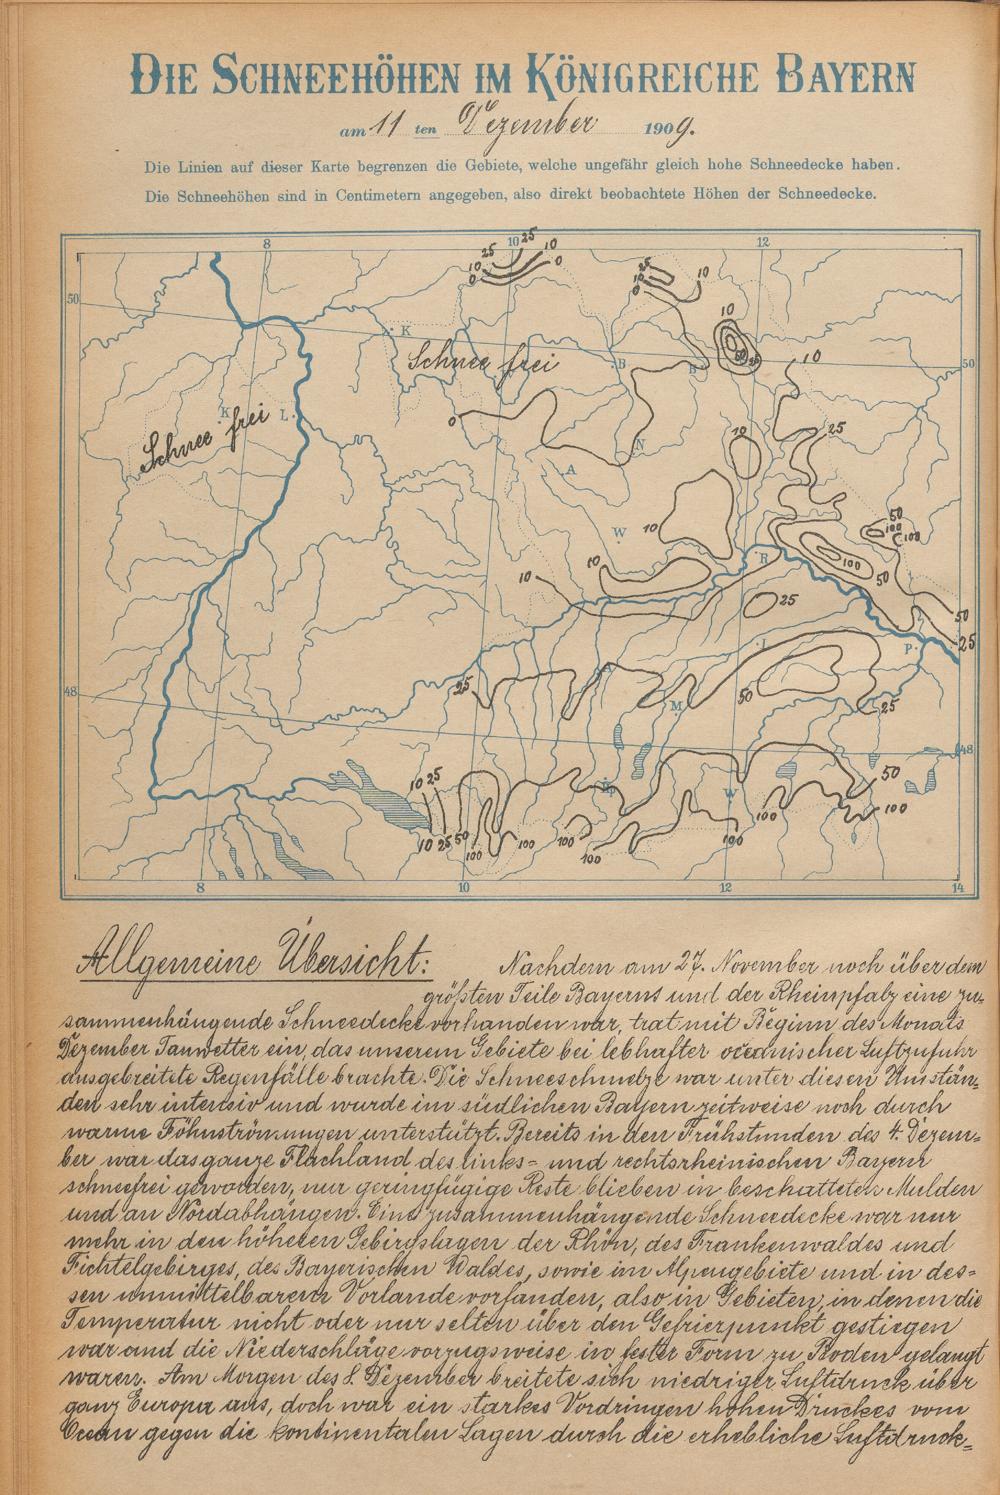 DIE SCHNEEHÖHEN IM KÖNIGREICHE BAYERN
am 11 ten Dezember 1909.
Die Linien auf dieser Karte begrenzen die Gebiete, welche ungefähr gleich hohe Schneedecke haben.
Die Schneehöhen sind in Centimetern angegeben, also direkt beobachtete Höhen der Schneedecke.
8 10 12
25 25 10
10 0
0
25 10
10
0
50
10
K
Schnee frei
B
B
50 25
10
50
K
L
Schnee frei
0
N
10
25
A
W
10
50
100
100
R
100
50
10
10
25
50
Z
25
P
I
25
A
50
M
25
48
48
10 25
50
W
100
100
10 25 50
100
100
100
100
100
8 10 12 14
Allgemeine Übersicht: Nachdem am 27. November noch über dem
größten Teile Bayerns und der Rheinpfalz eine zu-
sammenhängende Schneedecke vorhanden war, trat mit Beginn des Monats
Dezember Tauwetter ein, das unserem Gebiete bei lebhafter oceanischer Luftzufuhr
ausgebreitete Regenfälle brachte. Die Schneeschmelze war unter diesen Umstän-
den sehr intensiv und wurde im südlichen Bayern zeitweise noch durch
warme Föhnströmungen unterstützt. Bereits in den Frühstunden des 4. Dezem-
ber war das ganze Flachland des links- und rechtsrheinischen Bayern
schneefrei geworden, nur geringfügige Reste blieben in beschatteten Mulden
und an Nordabhängen. Eine zusammenhängende Schneedecke war nur
mehr in den höheren Gebirgslagen der Rhön, des Frankenwaldes und
Fichtelgebirges, des Bayerischen Waldes, sowie im Alpengebiete und in des-
sen unmittelbarem Vorlande vorhanden, also in Gebieten, in denen die
Temperatur nicht oder nur selten über den Gefrierpunkt gestiegen
war und die Niederschläge vorzugsweise in fester Form zu Boden gelangt
waren. Am Morgen des 8. Dezember breitete sich niedriger Luftdruck über
ganz Europa aus, doch war ein starkes Vordringen hohen Druckes vom
Ocean gegen die kontinentalen Lagen durch die erhebliche Luftdruck-